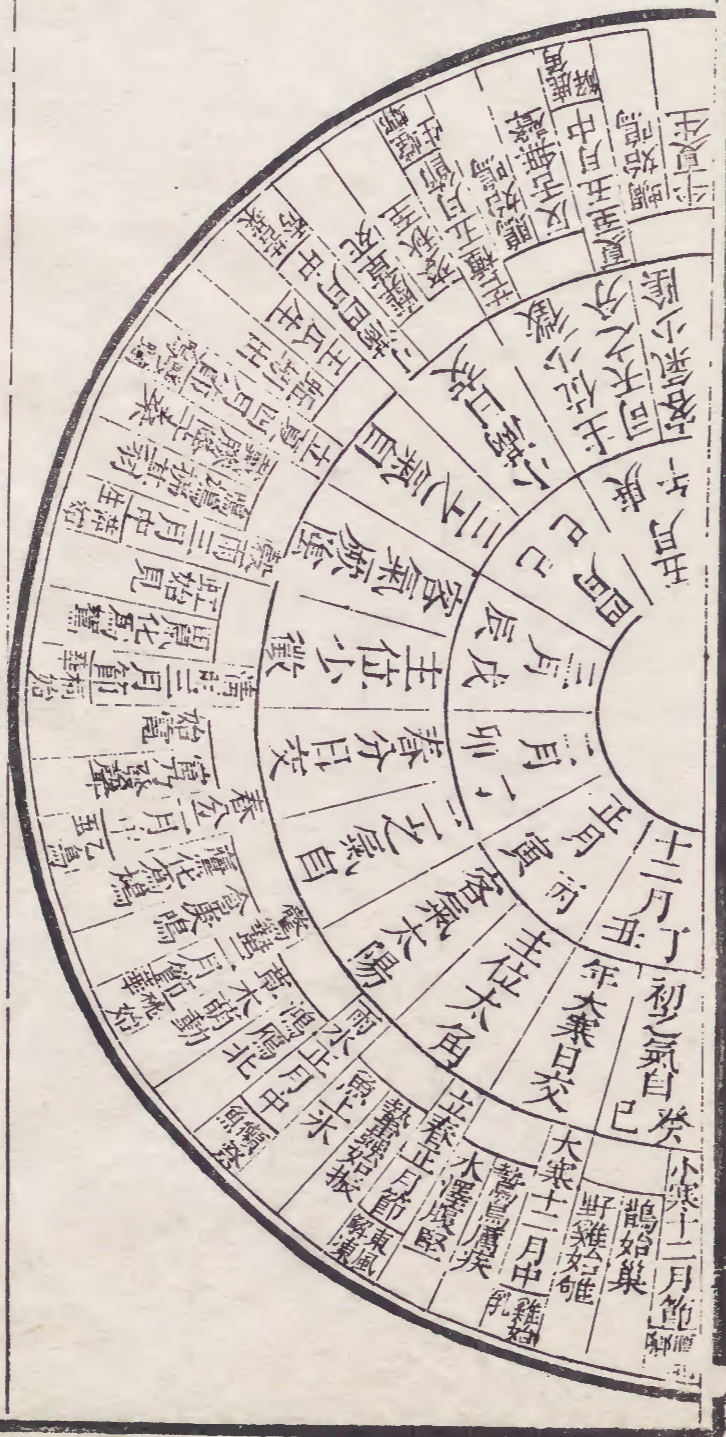 十二月丁
丑
正月丙
寅
二月丁
卯
三月戊
辰
四月己
巳
五月庚
午
初之氣自癸巳
年大寒日交
主位太角
客氣太陽
二之氣自
春分日交
主位少徵
客氣厥陰
三之氣自
小滿日交
主位少徵
司天之分
客氣少陰
小寒十二月節
鵲始巢
野雞始雊
大寒十二月中
雞始乳
鷙鳥厲疾
水澤腹堅
立春正月節
東風解凍
蟄蟲始振
魚上冰
雨水正月中
獺祭魚
鴻鴈北
草木萌動
驚蟄二月節
桃始華
倉庚鳴
鷹化為鳩
春分二月中
玄鳥至
雷乃發聲
始電
清明三月節
桐始華
田鼠化為鴽
虹始見
穀雨三月中
萍始生
鳴鳩拂其羽
戴勝降于桑
立夏四月節
螻蟈鳴
蚯蚓出
王瓜生
小滿四月中
苦菜秀
靡草死
麥秋至
芒種五月節
螳螂生
鵙始鳴
反舌無聲
夏至五月中
鹿角解
蜩始鳴
半夏生